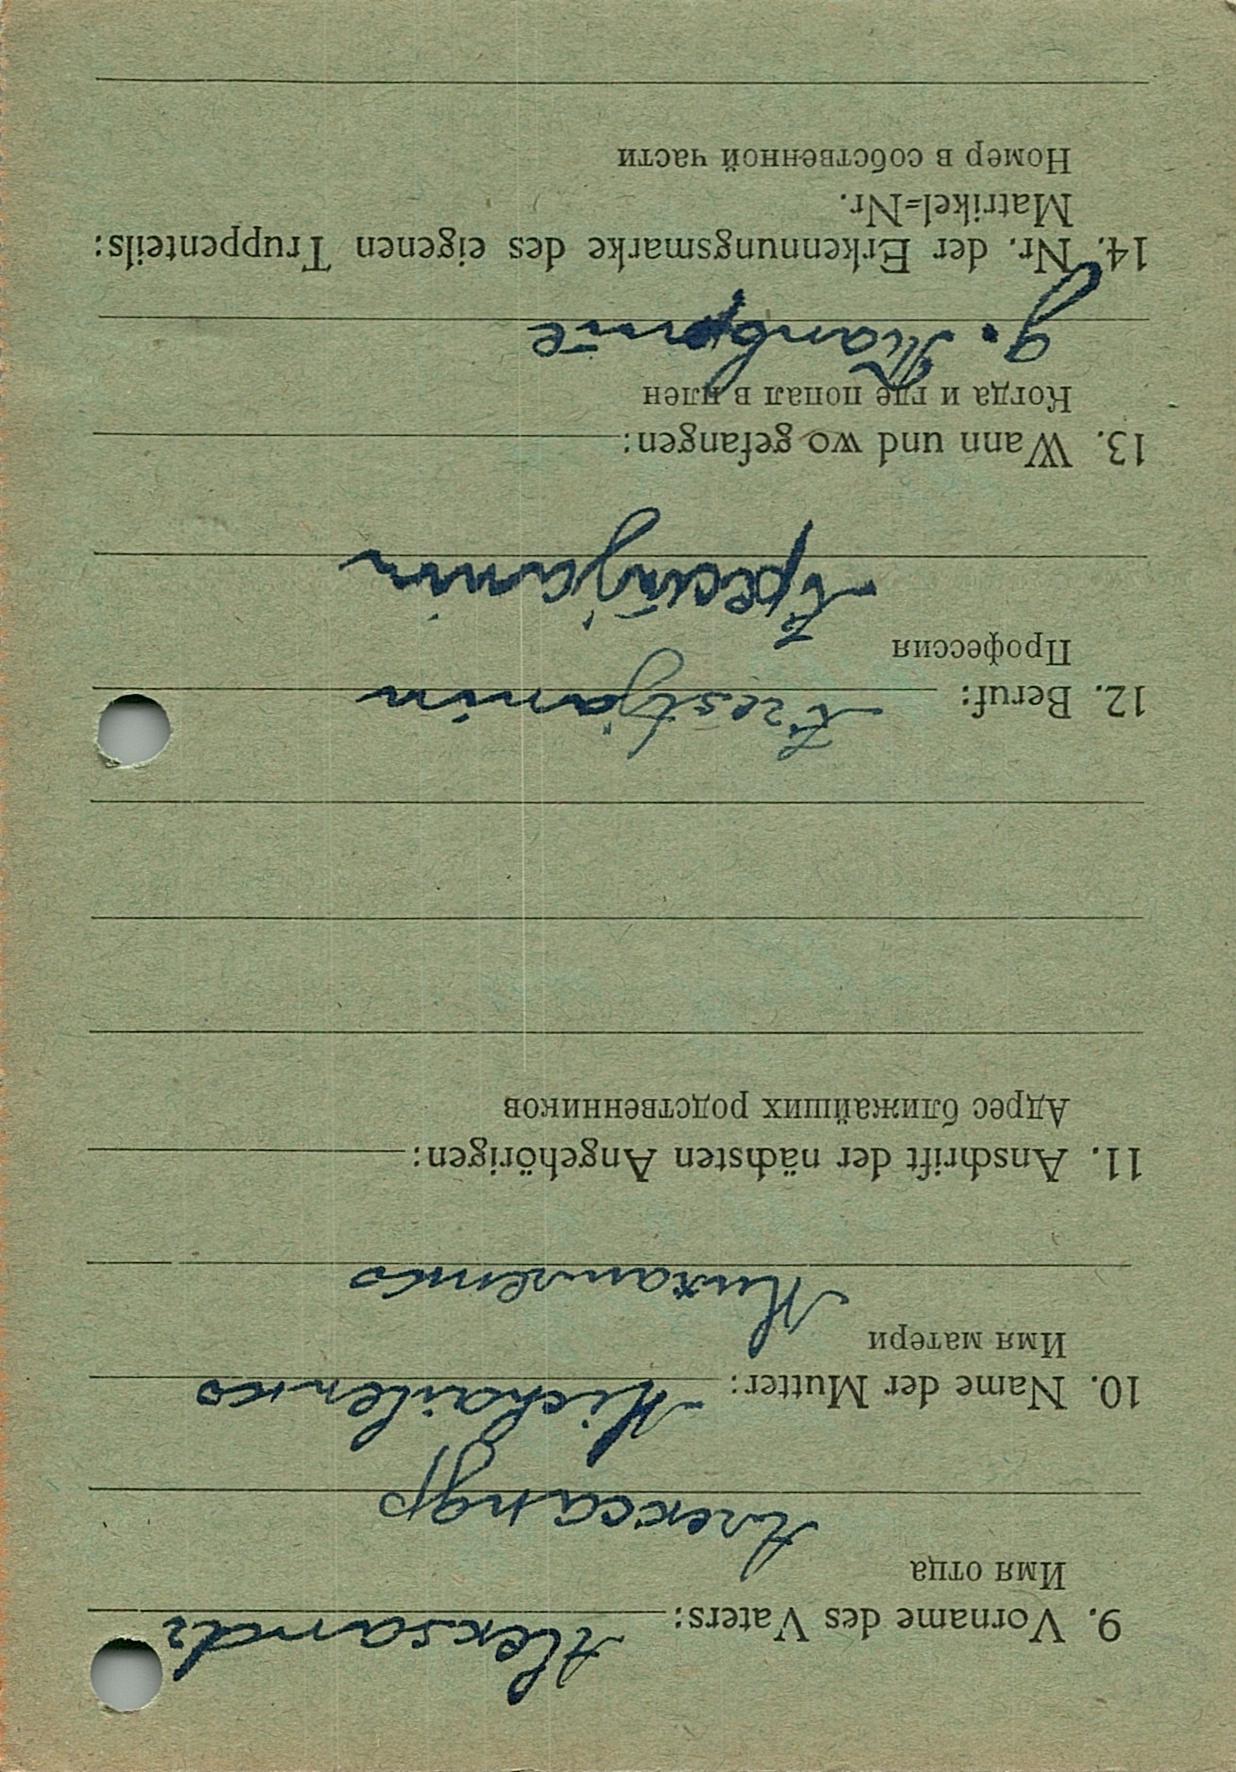 9. Vorname des Vaters: Aleksandr
Имя отца
Александр
10. Name der Mutter: Michailenko
Имя матери
Михаиленко
11. Anschrift der nächsten Angehörigen:
Адрес ближайших родственников
12. Beruf: Krestjanin
Профессия
13. Wann und wo gefangen:
Когда и где попал в плен
14. Nr. der Erkennungsmarke des eigenen Truppenteils:
Matrikel-Nr.
Номер в собственной части